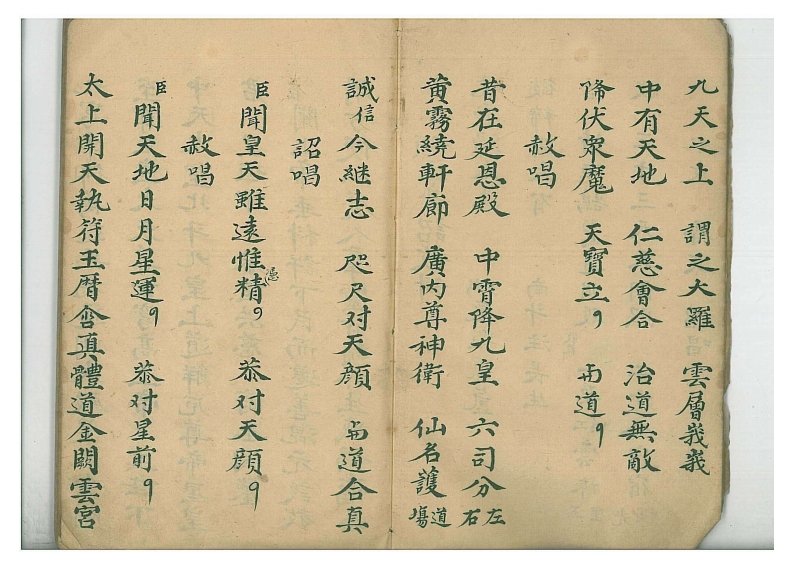 九天之上　謂之大羅　雲層峩峩
中有天地　仁慈會合　治道無敵
降伏眾魔　天寶立９　与道９
赦唱
昔在延恩殿　中霄降九皇　六司分左右
黃霧繞軒廊　廣內尊神衛　仙名護道場
誠信今継志　咫尺对天顔　与道合真
詔唱
臣聞皇天雖遠惟精憑９　恭对天顔９
赦唱
臣聞天地日月星運９　恭对星前９
太上開天執符玉曆含真體道金闕雲宮